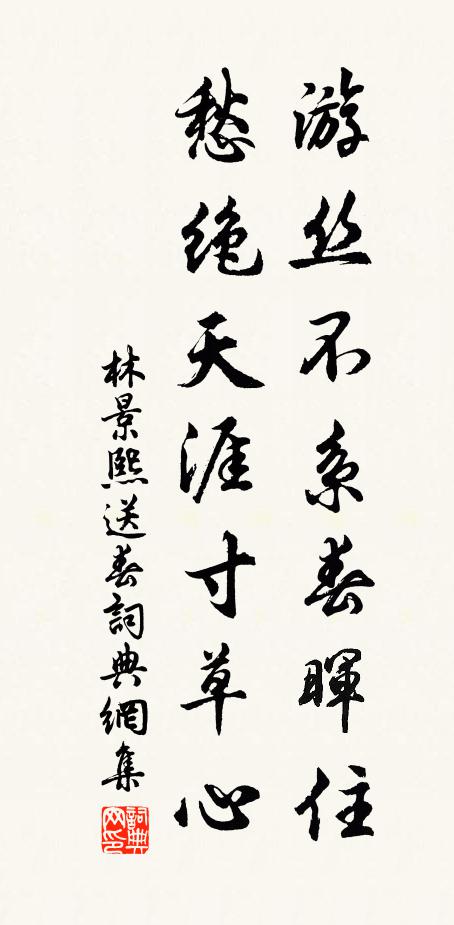 游丝不系春暉住
愁绝天涯寸草心
林景熙送春詞典網集
詞典网印